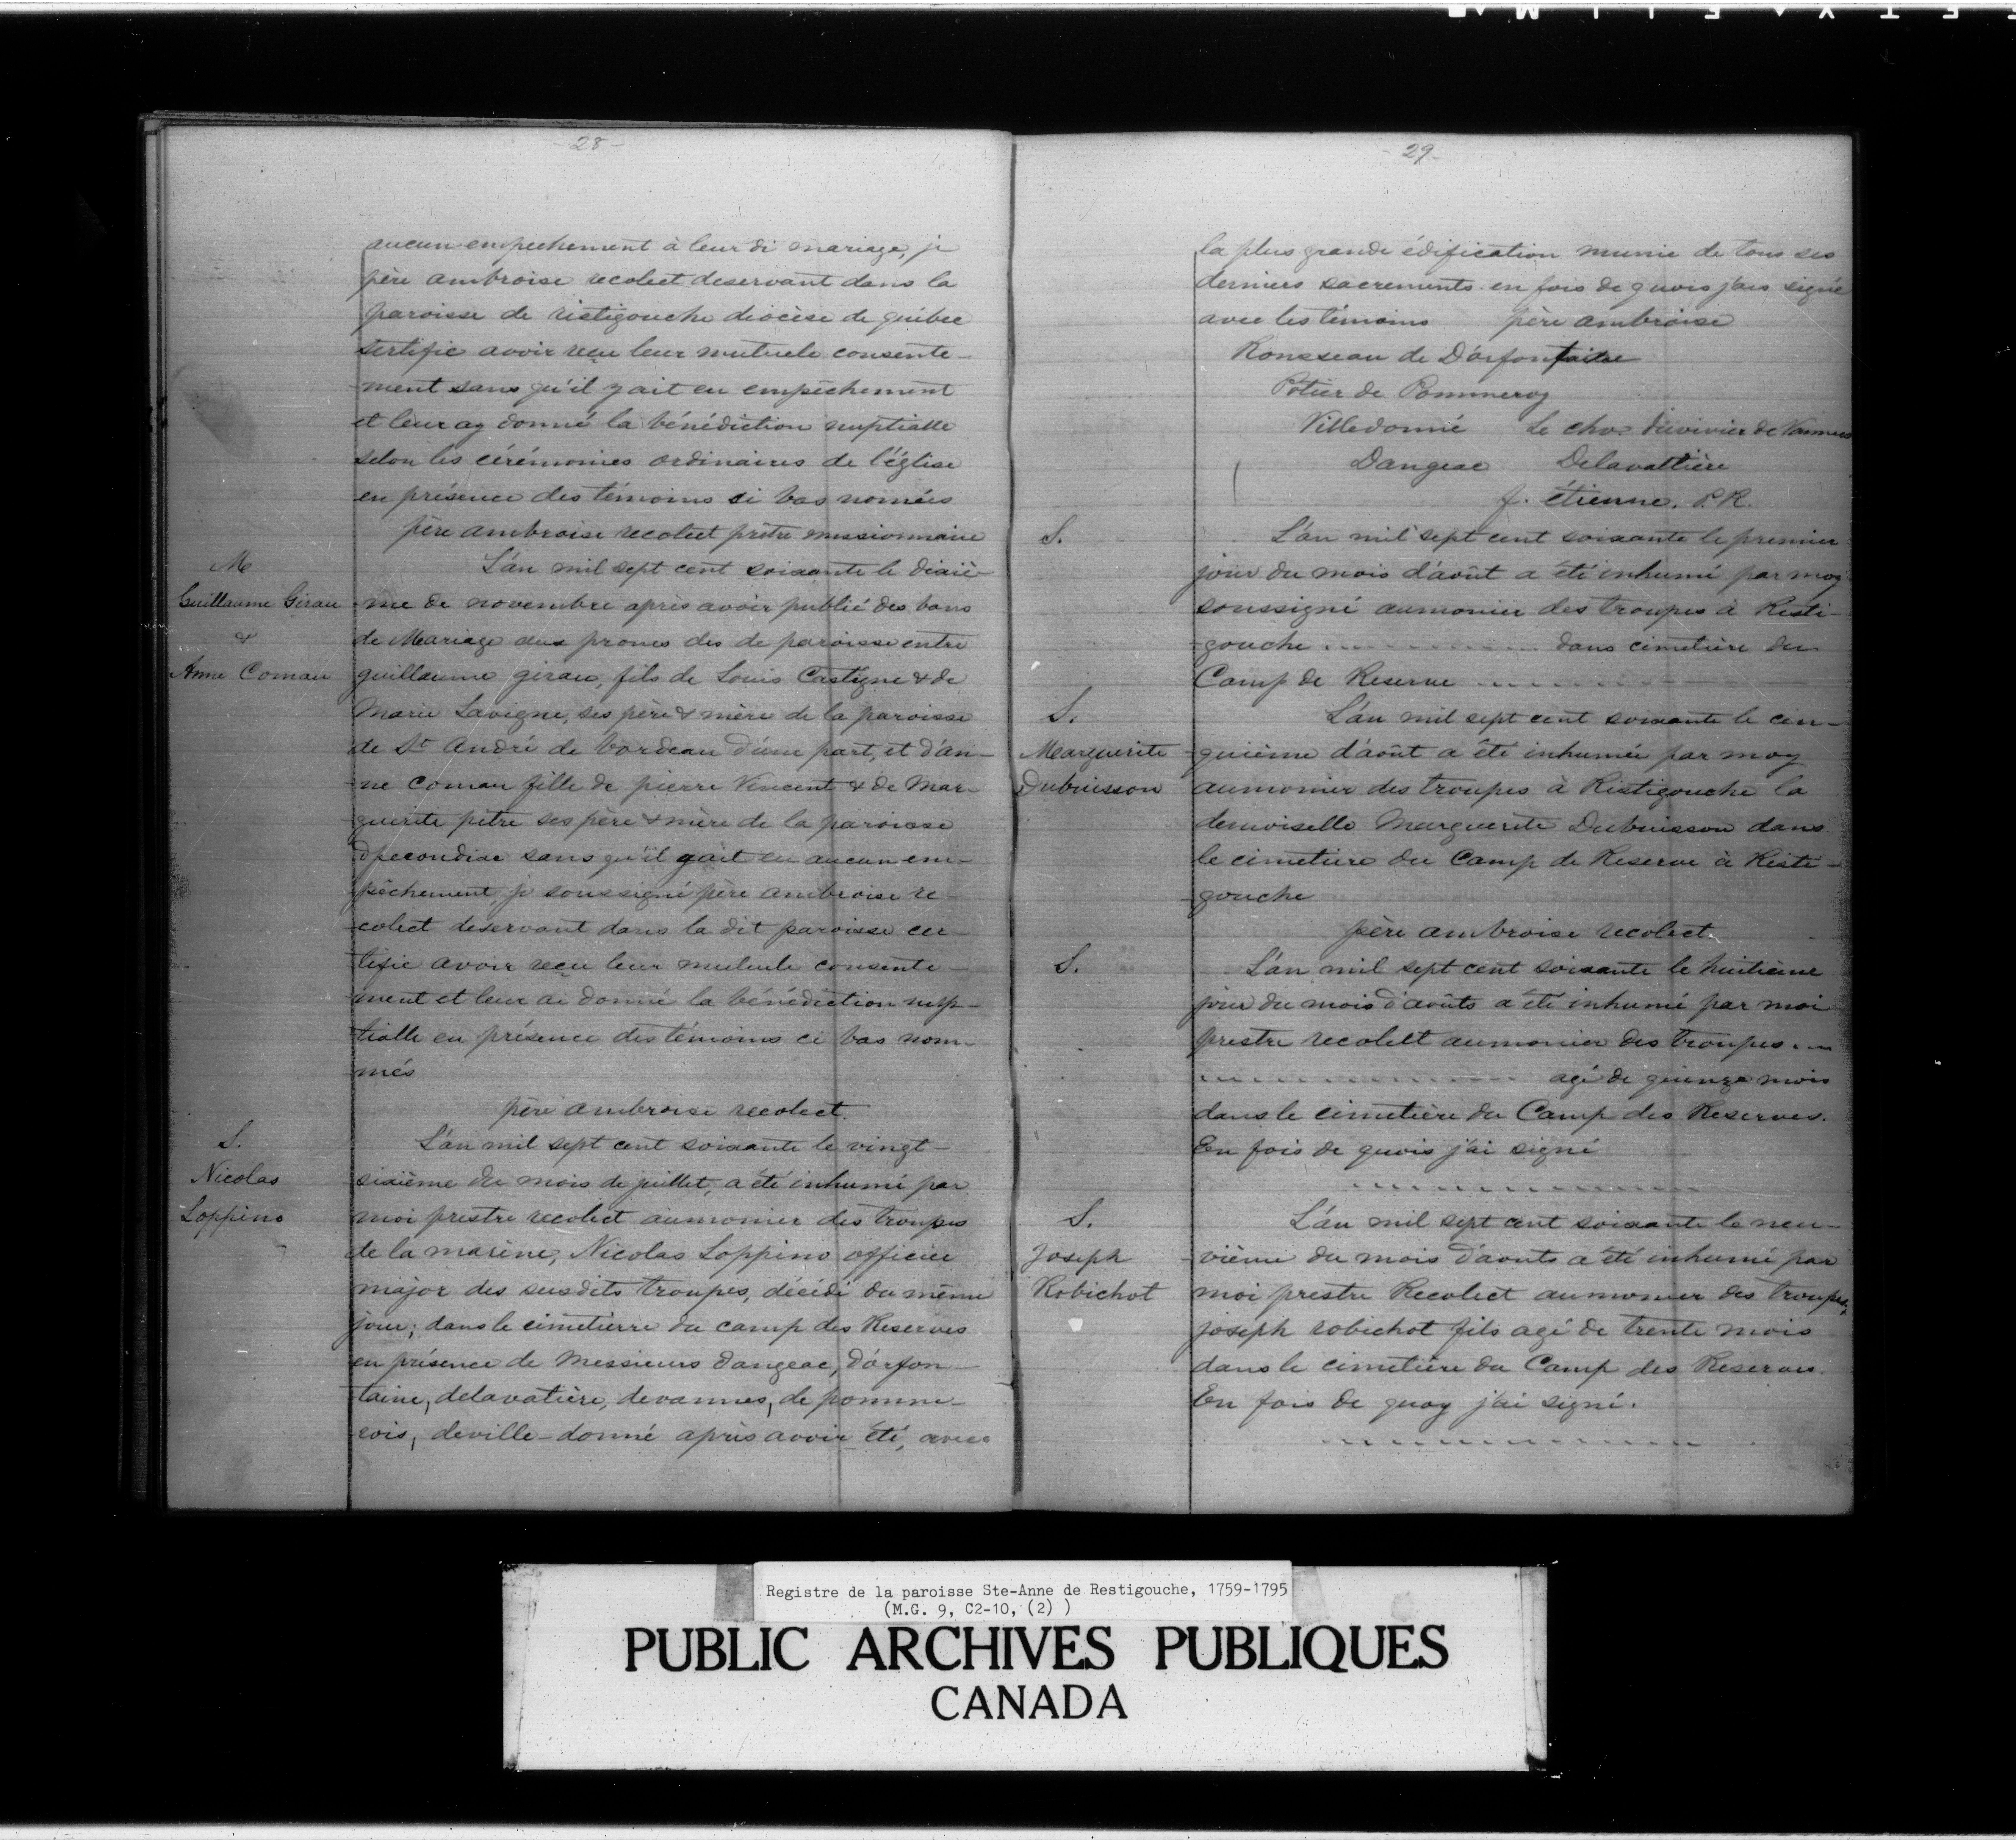 - 28 -
aucun empechement à leur di mariage, je
père ambroise recolect deservant dans la
paroisse de ristigouche diocèse de québec
sertifie avoir reçu leur mutuele consente-
ment sans qu'il y ait eu empêchement
et leur ay donné la bénédiction nuptialle
selon les cérémonies ordinaires de l'église
en présence des témoins si bas nomées
père ambroise recolect prêtre missionnaire
M
Guillaume Girau
&
Anne Comau
L'an mil sept cent soixante le dixiè-
me de novembre après avoir publié des bans
de Mariage aux prones des de paroisse entre
guillaume girau, fils de Louis Castigne & de
Marie Lavigne, ses père & mère de la paroisse
de St André de bordeau d'une part, et d'an-
ne comau fille de pierre Vincent & de Mar-
guerite pitre ses père & mère de la paroisse
sans qu'il y ait eu aucun em-
pêchement, je soussigné père ambroise re-
colect deservant dans la dit paroisse cer-
tifie avoir reçu leur mutuele consente-
ment et leur ai donné la bénédiction nup-
tialle en présence des témoins ci bas nom-
més
père ambroise recolect.
S.
Nicolas
Loppino
L'an mil sept cent soixante le vingt-
sixième du mois de juillet, a été inhumé par
moi prestre recolect aumonier des troupes
de la marine, Nicolas Loppino officier
major des susdits troupes, décédé du même
jour; dans le cimetierre du camp des Reserves
en présence de Messieurs dangeac, d'orfon-
taine, delavatière, devannes, de pomme-
rois, deville-donné après avoir été, avec
- 29 -
la plus grande édification munie de tous ses
derniers sacrements. en fois de quois j'ais signé
avec les témoins père ambroise
Ronsseau de D'orfontaine
Potier de Pommeroy
Villedonné Le chev duvivier de Vannes
Dangeac Delavattière
f. étienne. P.R.
S.
L'an mil sept cent soixante le premier
jour du mois d'août a été inhumé par moy
soussigné aumonier des troupes à Risti-
gouche .............. dans cimetière du
Camp de Reserve ..............
S.
Marguerite
Dubuisson
L'an mil sept cent soixante le cin-
quième d'août a été inhumée par moy
aumonier des troupes à Ristigouche la
demoiselle Marguerite Dubuisson dans
le cimetiere du Camp de Reserve à Risti-
gouche
père ambroise recolect.
S.
L'an mil sept cent soixante le huitième
jour du mois d'aoûts a été inhumé par moi
prestre recolelt aumonier des troupes ...
.............. agé de quinze mois
dans le cimetière du Camp des Reserves.
En fois de quois j'ai signé
..............
S.
Joseph
Robichot
L'an mil sept cent soixante le neu-
vième du mois d'aouts a été inhumé par
moi prestre Recolect aumonier des troupes,
joseph robichot fils agé de trente mois
dans le cimetière du Camp des Reserves.
En fois de quoy j'ai signé.
..............
Registre de la paroisse Ste-Anne de Restigouche, 1759-1795
(M.G. 9, C2-10, (2) )
PUBLIC ARCHIVES PUBLIQUES
CANADA